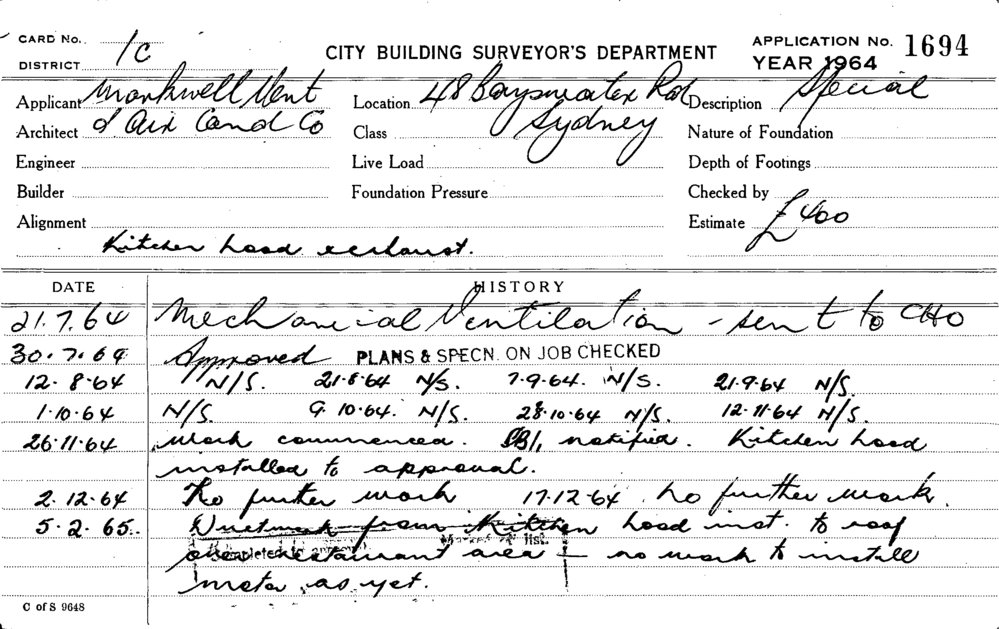 CARD No. 1c
DISTRICT
CITY BUILDING SURVEYOR'S DEPARTMENT
APPLICATION No. 1694
YEAR 1964
Applicant Markwell Vent
Location 48 Bayswater Rd
Description Special
Architect & Air Cond Co
Class Sydney
Nature of Foundation
Engineer
Live Load
Depth of Footings
Builder
Foundation Pressure
Checked by
Alignment
Estimate £400
Kitchen hood exhaust.
DATE
HISTORY
21.7.64 Mechanical Ventilation - sent to CHO
30.7.64 Approved PLANS & SPECN. ON JOB CHECKED
12.8.64 N/S. 21.8.64 N/S. 7.9.64. N/S. 21.9.64 N/S.
1.10.64 N/S. 9.10.64. N/S. 28.10.64 N/S. 12.11.64 N/S.
26.11.64 work commenced. notified. Kitchen hood
installed to approval.
2.12.64 No further work 17.12.64. No further work.
5.2.65. Ductwork from Kitchen hood inst. to roof
over restaurant area - no work to install
motor as yet.
Completed to
list.
C of S 9648